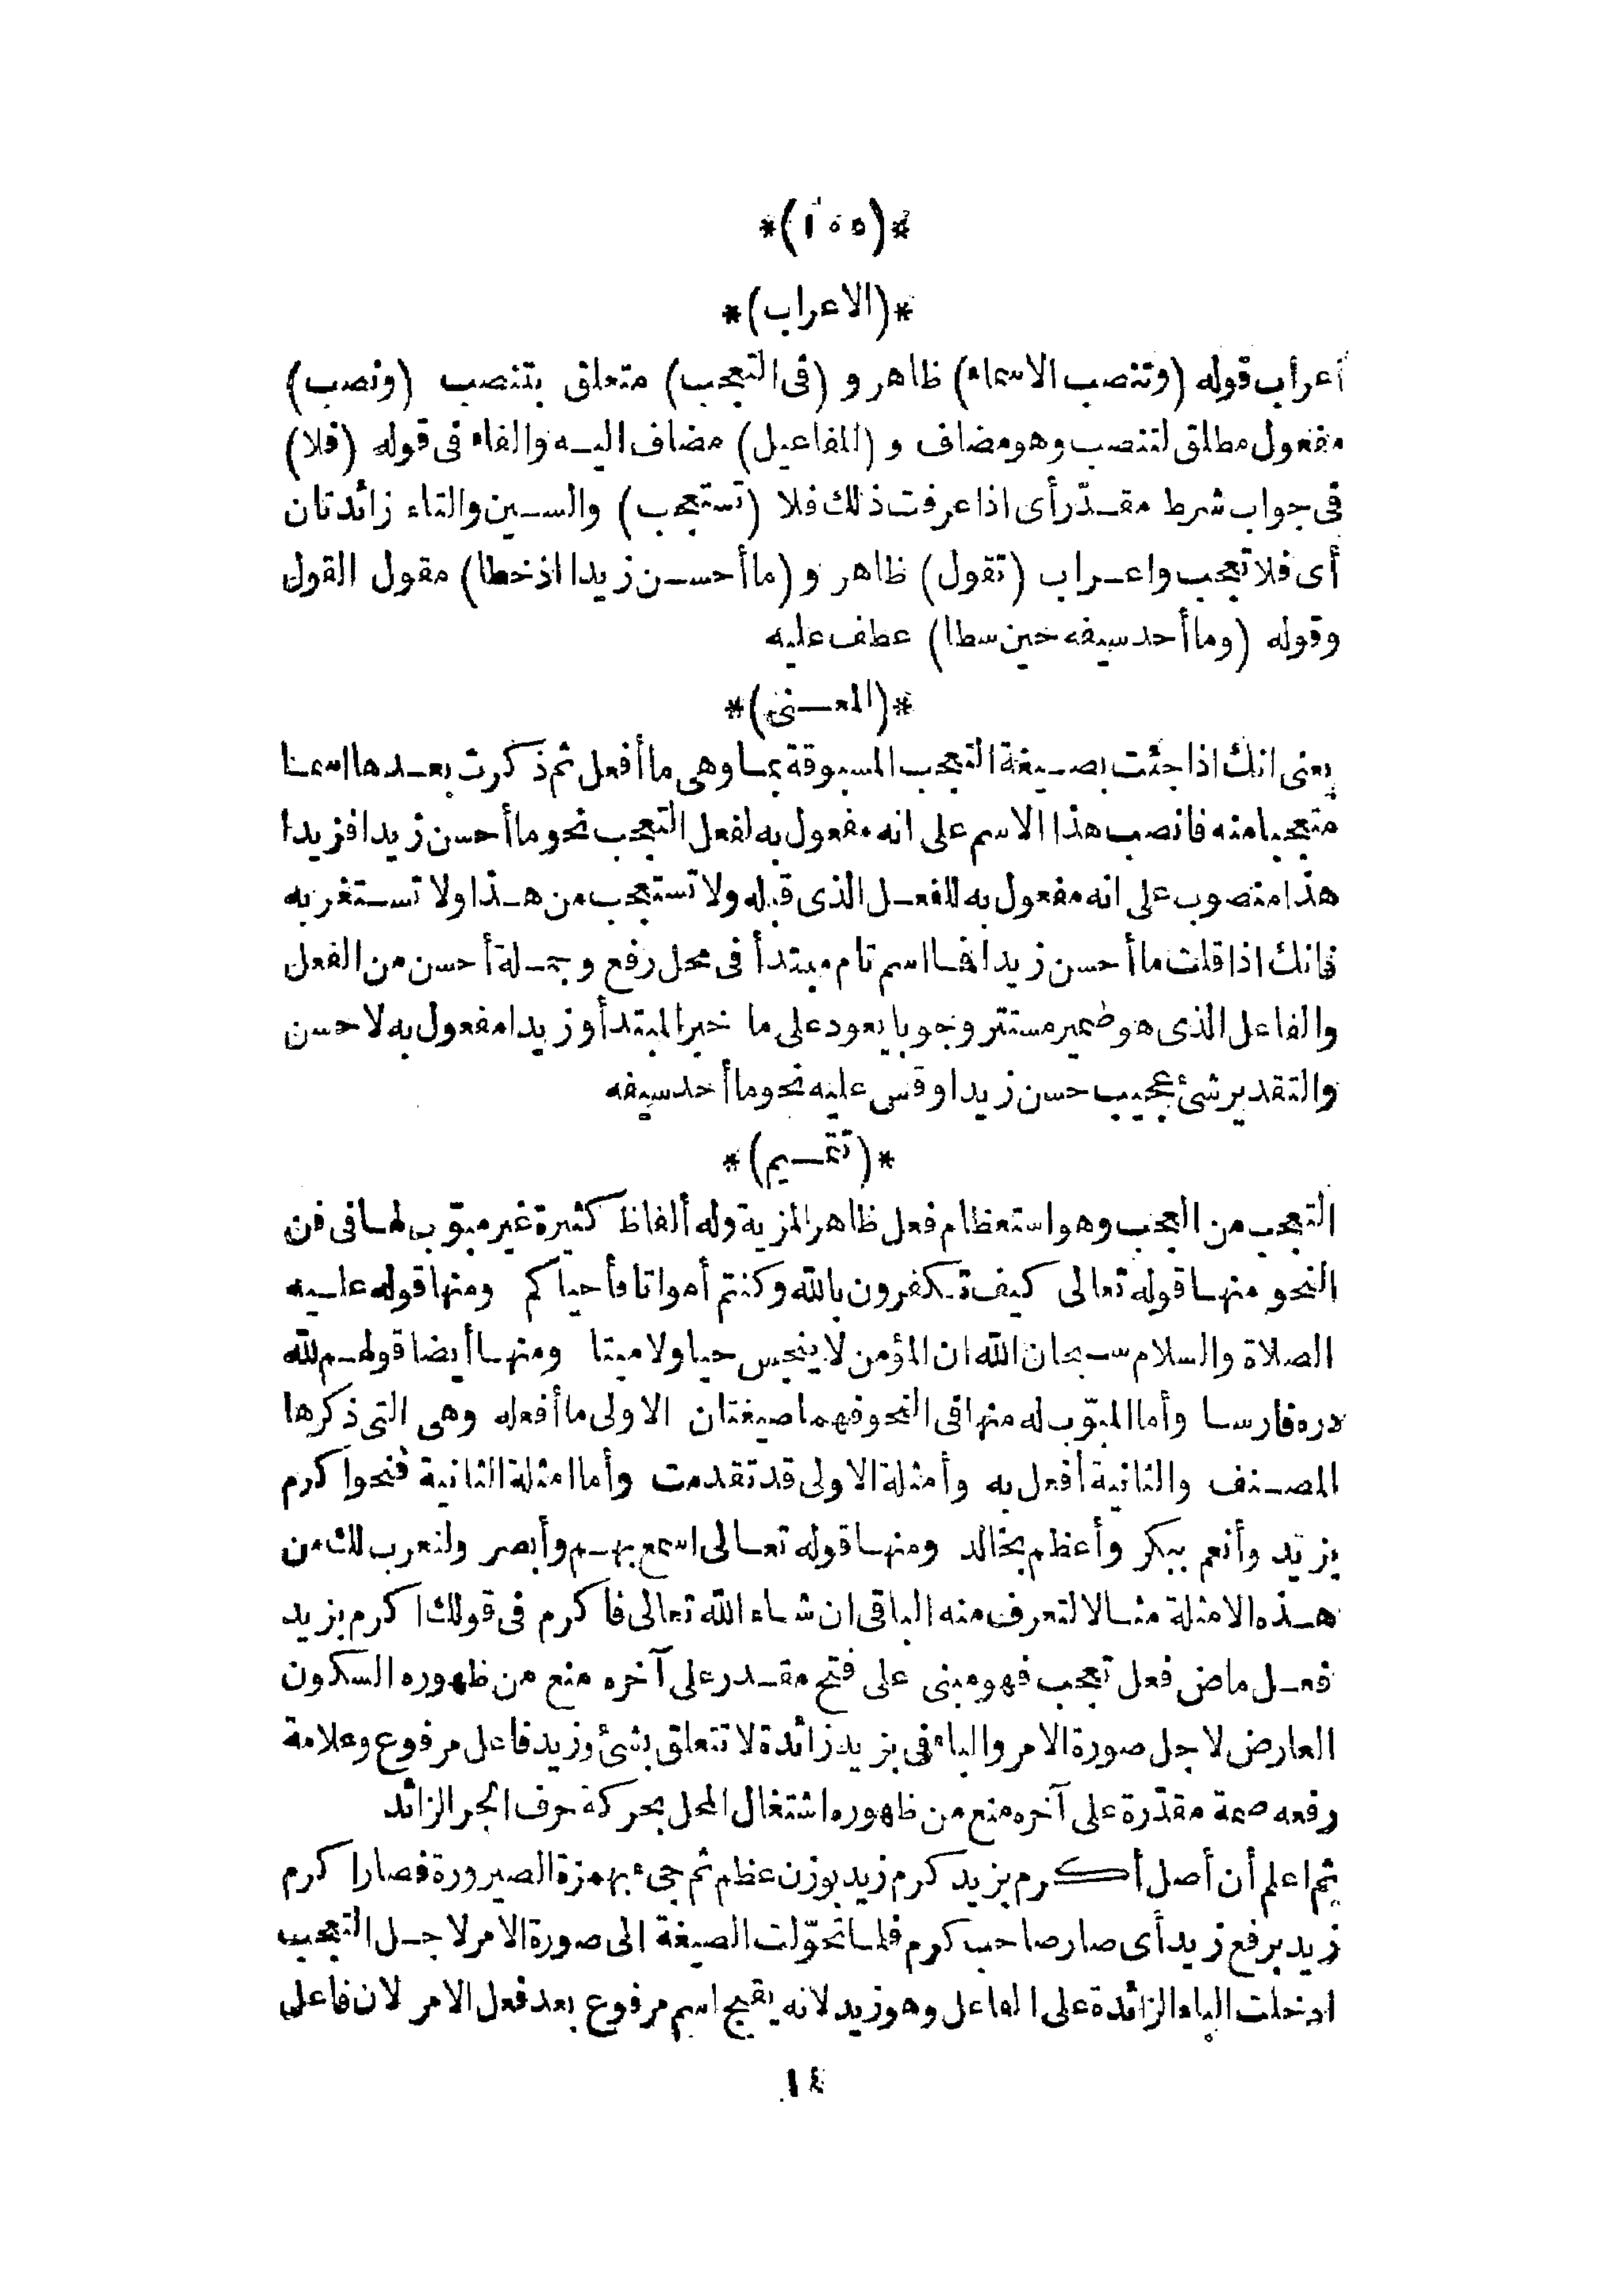 *(١٠٥)*
*(الاعراب)*
اعراب قوله (وتنصب الاسماء) ظاهر و (فى التعجب) متعلق بتنصب (ونصب)
مفعول مطلق لتنصب وهو مضاف و (المفاعيل) مضاف اليه والفاء فى قوله (فلا)
فى جواب شرط مقدّر أى اذا عرفت ذلك فلا (تستعجب) والسين والتاء زائدتان
أى فلا تعجب واعراب (تقول) ظاهر و (ما أحسن زيدا اذ خطا) مقول القول
وقوله (وما أحد سيفه حين سطا) عطف عليه
*(المعنى)*
يعنى انك اذا جئت بصيغة التعجب المسبوقة بما وهى ما أفعل ثم ذكرت بعدها اسما
متعجبا منه فانصب هذا الاسم على انه مفعول به لفعل التعجب نحو ما أحسن زيدا فزيدا
هذا منصوب على انه مفعول به للفعل الذى قبله ولا تستعجب من هذا ولا تستغربه
فانك اذا قلت ما أحسن زيدا فما اسم تام مبتدأ فى محل رفع وجملة أحسن من الفعل
والفاعل الذى هو ضمير مستتر وجوبا يعود على ما خبر المبتدأ وزيدا مفعول به لاحسن
والتقدير شئ عجيب حسن زيدا وقس عليه نحو ما أحد سيفه
*(تقسيم)*
التعجب من العجب وهو استعظام فعل ظاهر المزية وله ألفاظ كثيرة غير مبوّب لها فى فن
النحو منها قوله تعالى كيف تكفرون بالله وكنتم أمواتا فأحياكم ومنها قوله عليه
الصلاة والسلام سبحان الله ان المؤمن لا ينجس حيا ولا ميتا ومنها أيضا قولهم لله
دره فارسا وأما المبوّب له منها فى النحو فهما صيغتان الاولى ما أفعله وهى التى ذكرها
المصنف والثانية أفعل به وأمثلة الاولى قد تقدمت وأما امثلة الثانية فنحو اكرم
بزيد وأنعم ببكر وأعظم بخالد ومنها قوله تعالى اسمع بهم وأبصر ولنعرب لك من
هذه الامثلة مثالا لتعرف منه الباقى ان شاء الله تعالى فأكرم فى قولك اكرم بزيد
فعل ماض فعل تعجب فهو مبنى على فتح مقدر على آخره منع من ظهوره السكون
العارض لاجل صورة الامر والباء فى بزيد زائدة لا تتعلق بشئ وزيد فاعل مرفوع وعلامة
رفعه ضمة مقدّرة على آخره منع من ظهوره اشتغال المحل بحركة حرف الجر الزائد
ثم اعلم أن أصل أكرم بزيد كرم زيد بوزن عظم ثم جىء بهمزة الصيرورة فصار اكرم
زيد برفع زيد أى صار صاحب كرم فلما تحوّلت الصيغة الى صورة الامر لاجل التعجب
ادخلت الباء الزائدة على الفاعل وهو زيد لانه يقبح اسم مرفوع بعد فعل الامر لان فاعل
١٤